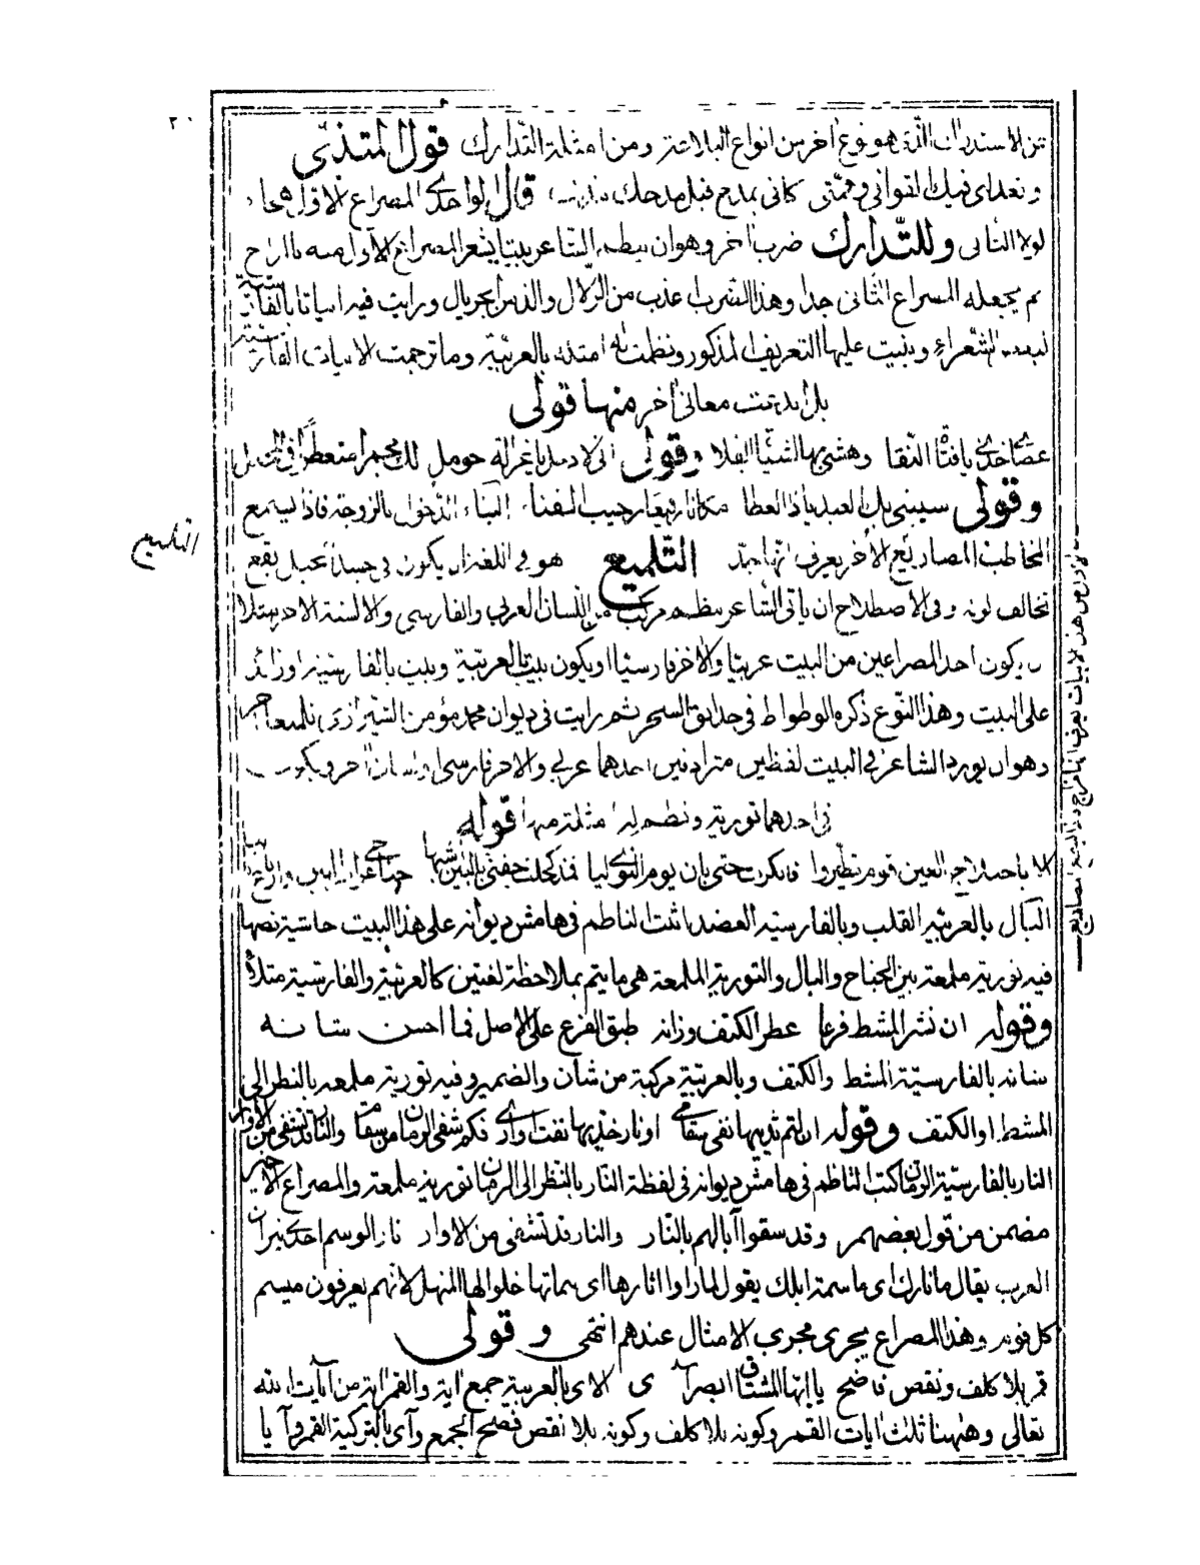 ٢٠
من الاستدراك الذي هو نوع آخر من انواع البلاغة ومن امثلة التدارك قول المتنبي
وتعذلي فيك القوافي وهمتي كاني بمدح قبل مدحك مذنب قال الواحدي المصراع الاول هجاء
لولا الثاني وللتدارك ضرب آخر وهو ان ينظم الشاعر بيتا يشعر المصراع الاول منه بالمزاح
ثم يجعله المصراع الثاني جدا وهذا الضرب اعذب من الزلال والذ من الجريال ورايت فيه ابياتا بالفارسية
لبعض الشعراء وبنيت عليها التعريف المذكور ونظمت له امثلة بالعربية وما ترجمت الابيات الفارسية
بل ابدعت معاني اخر منها قولي
عضا خدي يا فتاة النقا وهشي بها الشياه الفلا وقولي لك مجمرا متعطرا في
وقولي سيبني بك العبد ياذ العطا مكانا رفيعا رحيب الفناء البناء الدخول بالزوجة فاذا يسمع
المخاطب المصاريع الأخر يعرف انها جد التلميع هو في اللغة ان يكون في جسد الخيل بقع
تخالف لونه وفي الاصطلاح ان ياتي الشاعر بنظم مركب من اللسان العربي والفارسي والالسنة الاخر مثلا
يكون احد المصراعين من البيت عربيا والآخر فارسيا او يكون بيت بالعربية وبيت بالفارسية او زائد
على البيت وهذا النوع ذكره الوطواط في حدائق السحر ثم رايت في ديوان محمد مؤمن الشيرازي تلميعا آخر
وهو ان يورد الشاعر في البيت لفظين مترادفين احدهما عربي والاخر فارسي او لسان آخر ويكون
في احدهما تورية ونظم له امثلة منها قوله
الا يا جناح العين قوم تطيروا فانكرت حتى بان يوم النوى ليا
البال بالعربية القلب وبالفارسية العضد اثبت الناظم في هامش ديوانه على هذا البيت حاشية نصها
فيه تورية ملمعة بين الجناح والبال والتورية الملمعة هي ما يتم بملاحظة لغتين كالعربية والفارسية مثلا
وقوله ان نشر المشط فرعا عطر الكتف وزانه طبق الفرع على الاصل فما احسن شانه
شانه بالفارسية المشط والكتف وبالعربية مركبة من شان والضمير وفيه تورية ملمعة بالنظر الى
المشط او الكتف وقوله ان لثم ثديها نفى سقامي او نار خديها نفت واري فكم شفى الرمان من سقام والنار قد تشفي من الأوار
النار بالفارسية الرمان كتب الناظم في هامش ديوانه في لفظة النار بالنظر الى الرمان تورية ملمعة والمصراع الاخير
مضمن من قول بعضهم وقد سقوا آبالهم بالنار والنار قد تشفي من الاوار نار الوسم احدى نيران
العرب يقال ما نارك اي ما سمة ابلك يقول لما راوا اثارها اي سماتها خلوا لها المنهل لانهم يعرفون ميسم
كل قوم وهذا المصراع يجري مجرى الامثال عندهم انتهى وقولي
قمر بلا كلف ونقص واضح يا ايها المشتاق ابصر آي الآي بالعربية جمع آية والقمر اية من آيات الله
تعالى وههنا ثلث آيات القمر وكونه بلا كلف وكونه بلا نقص فصح الجمع وآي بالتركية القمر وآ يا
التلميع
لاول من هذه الابيات يعرف انها مزاح واذا يسمع المصاريع